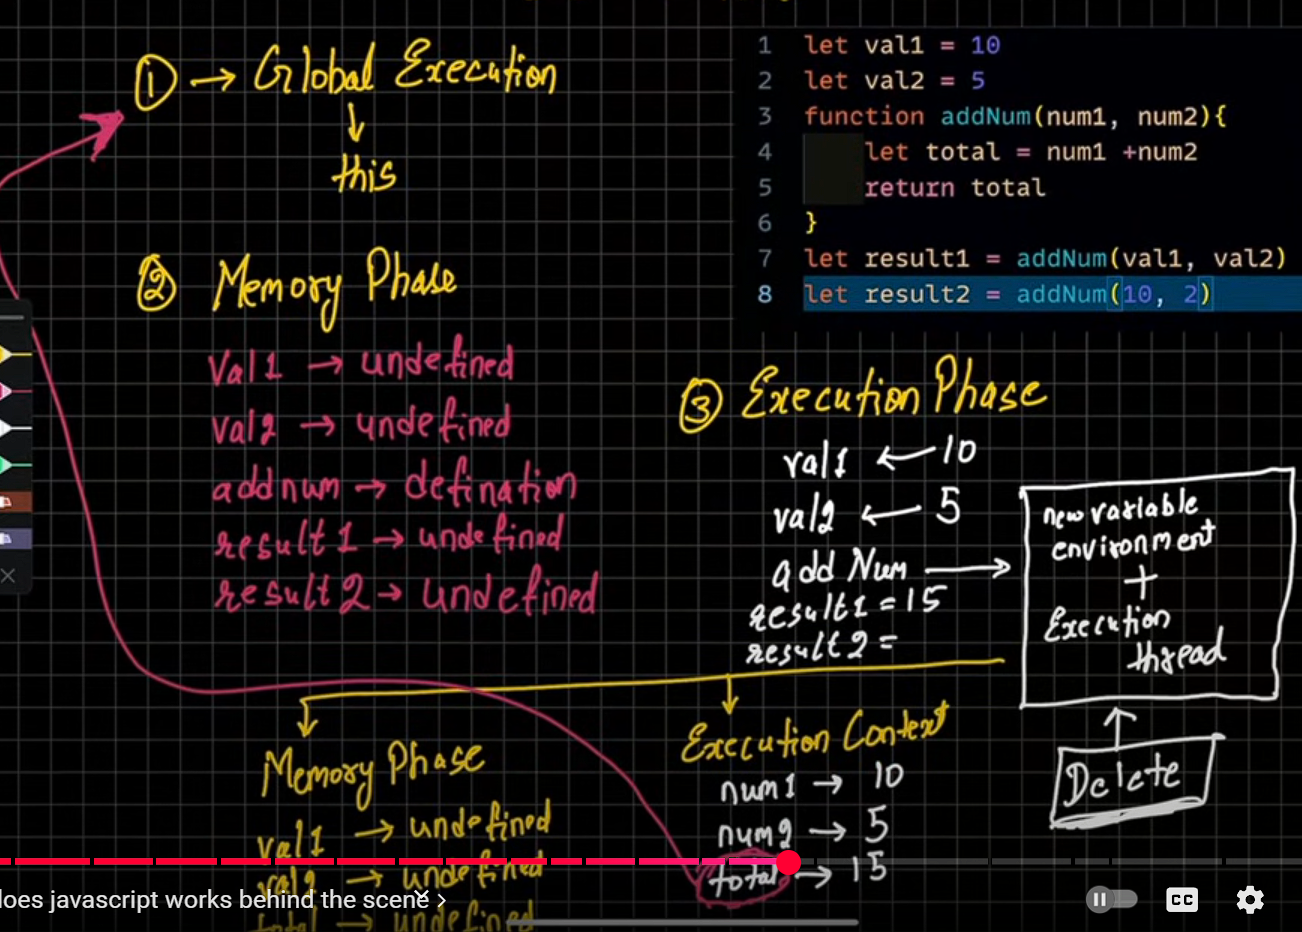 ① → Global Execution
↓
this
② Memory Phase
Val1 → undefined
val2 → undefined
addnum → defination
result1 → undefined
result2 → undefined
1 let val1 = 10
2 let val2 = 5
3 function addNum(num1, num2){
4 let total = num1 +num2
5 return total
6 }
7 let result1 = addNum(val1, val2)
8 let result2 = addNum(10, 2)
③ Execution Phase
val1 ← 10
val2 ← 5
add Num →
result1 = 15
result2 =
new variable
environment
+
Execution
thread
Delete
Memory Phase
val1 → undefined
val2 → undefined
total → undefined
Execution Context
num1 → 10
num2 → 5
total → 15
does javascript works behind the scene ›
CC